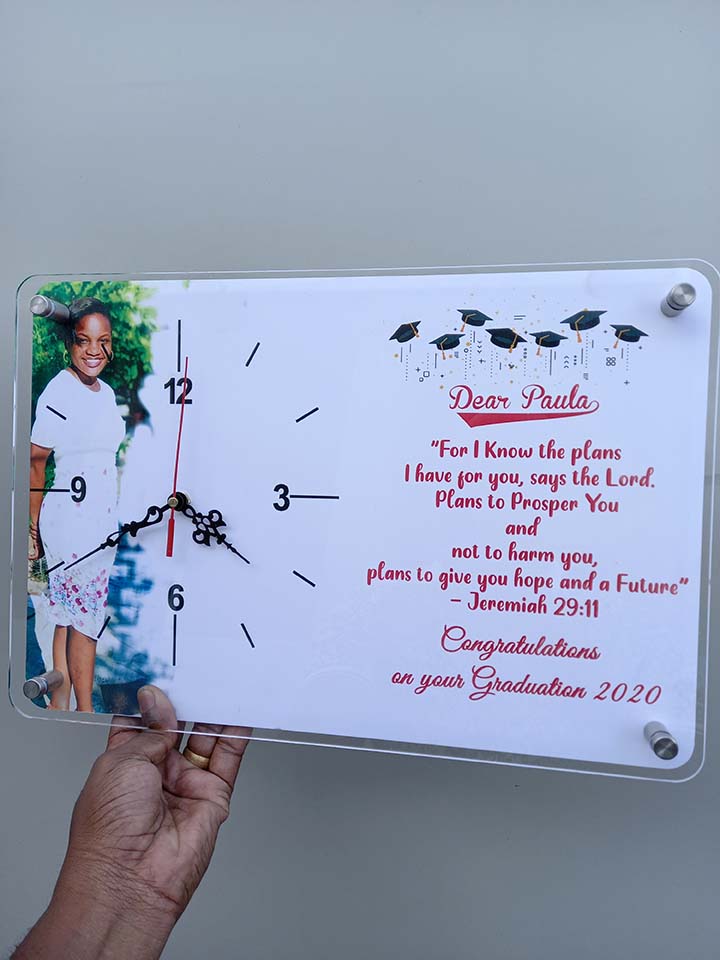 12
9
3
6
Dear Paula
"For I Know the plans
I have for you, says the Lord.
Plans to Prosper You
and
not to harm you,
plans to give you hope and a Future"
– Jeremiah 29:11
Congratulations
on your Graduation 2020